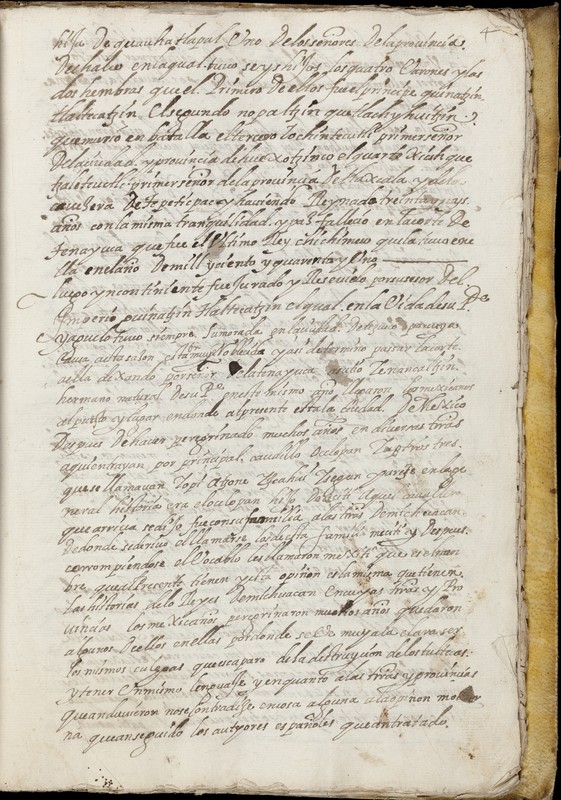 4
hija De quauhatlapal Uno Delos señores Dela provincia
De chalco en la qual tuvo seys hijos los quatro Varones y las
dos hembras que el Primero De ellos fue el principe quinatzin
tlaltecatzin, El segundo nopaltzin quetlachyhuitzin
que murio en batalla el tercero tochintecuhtli primer señor
Dela ciudad y provincia de huexotzinco el quarto Xiuhque
tzaltecuhtli primer señor dela provincia De tlaxcala y
cavezera De tepeticpac y haviendo Reynado treinta y seys
años con la misma tranquilidad y paz fallecio en la corte De
tenayuca que fue el Ultimo Rey chichimeco que la tuvo en e
lla en el año De mill y ciento y quarenta y Uno
luego yncontiniente fue Jurado y Resevido por susesor Del
Imperio quinatzin tlaltecatzin el qual en la Vida de su P.e
y aguelo tuvo siempre su morada en la ciudad De tezcuco
cuya causa con estar muy poblada y asi determino pasar la corte
a ella dexando por señor De la tenayuca a su tio tenancaltzin
hermano natural De su P.e en este mismo año llegaron los mexicanos
al puesto y lugar en donde al presente esta la ciudad De Mexico
Despues De haver peregrinado muchos años en diversas tras
aqui entrayan por principal caudillo ocelopan y otros tres
que se llamavan Topi Ahxone Yzcahui segun parese en la ge
neral historia era ocelopan hijo De citi aquel cavallero
que arriva se dijo fue con su familia a las tras De michuacan
De donde se derivo el llamarse los desta familia meciti y Despues
corrompiendose el Vocablo les llamaron mexiti que es el nom
bre que al presente tienen y esta opinion es la misma que tienen
las historias De los Reyes De michuacan en cuyas tras y Pro
vincias los mexicanos peregrinaron muchos años quedaron
algunos De ellos en ellas por donde se Ve muy a la clara ser
los mismos culguas que escaparo de la destruyción de los tultecas
y tener Un mismo lenguaxe y en quanto a las tras y provincias
que anduvieron no se contradise en cosa alguna a la opinon moder
na que an seguido los autpores españoles que an tratado